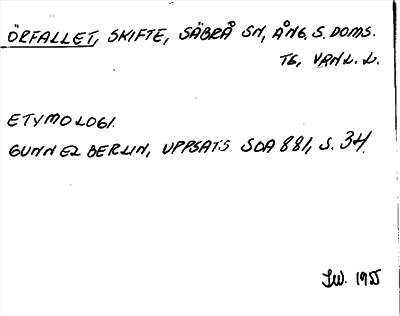 ÖRFALLET, SKIFTE, SÄBRÅ SN, ÅNG. S. DOMS.
TG, VÄN. L. L.
ETYMOLOGI.
GUNNEL BERLIN, UPPSATS SOA 881, S. 34.
J.W. 1955